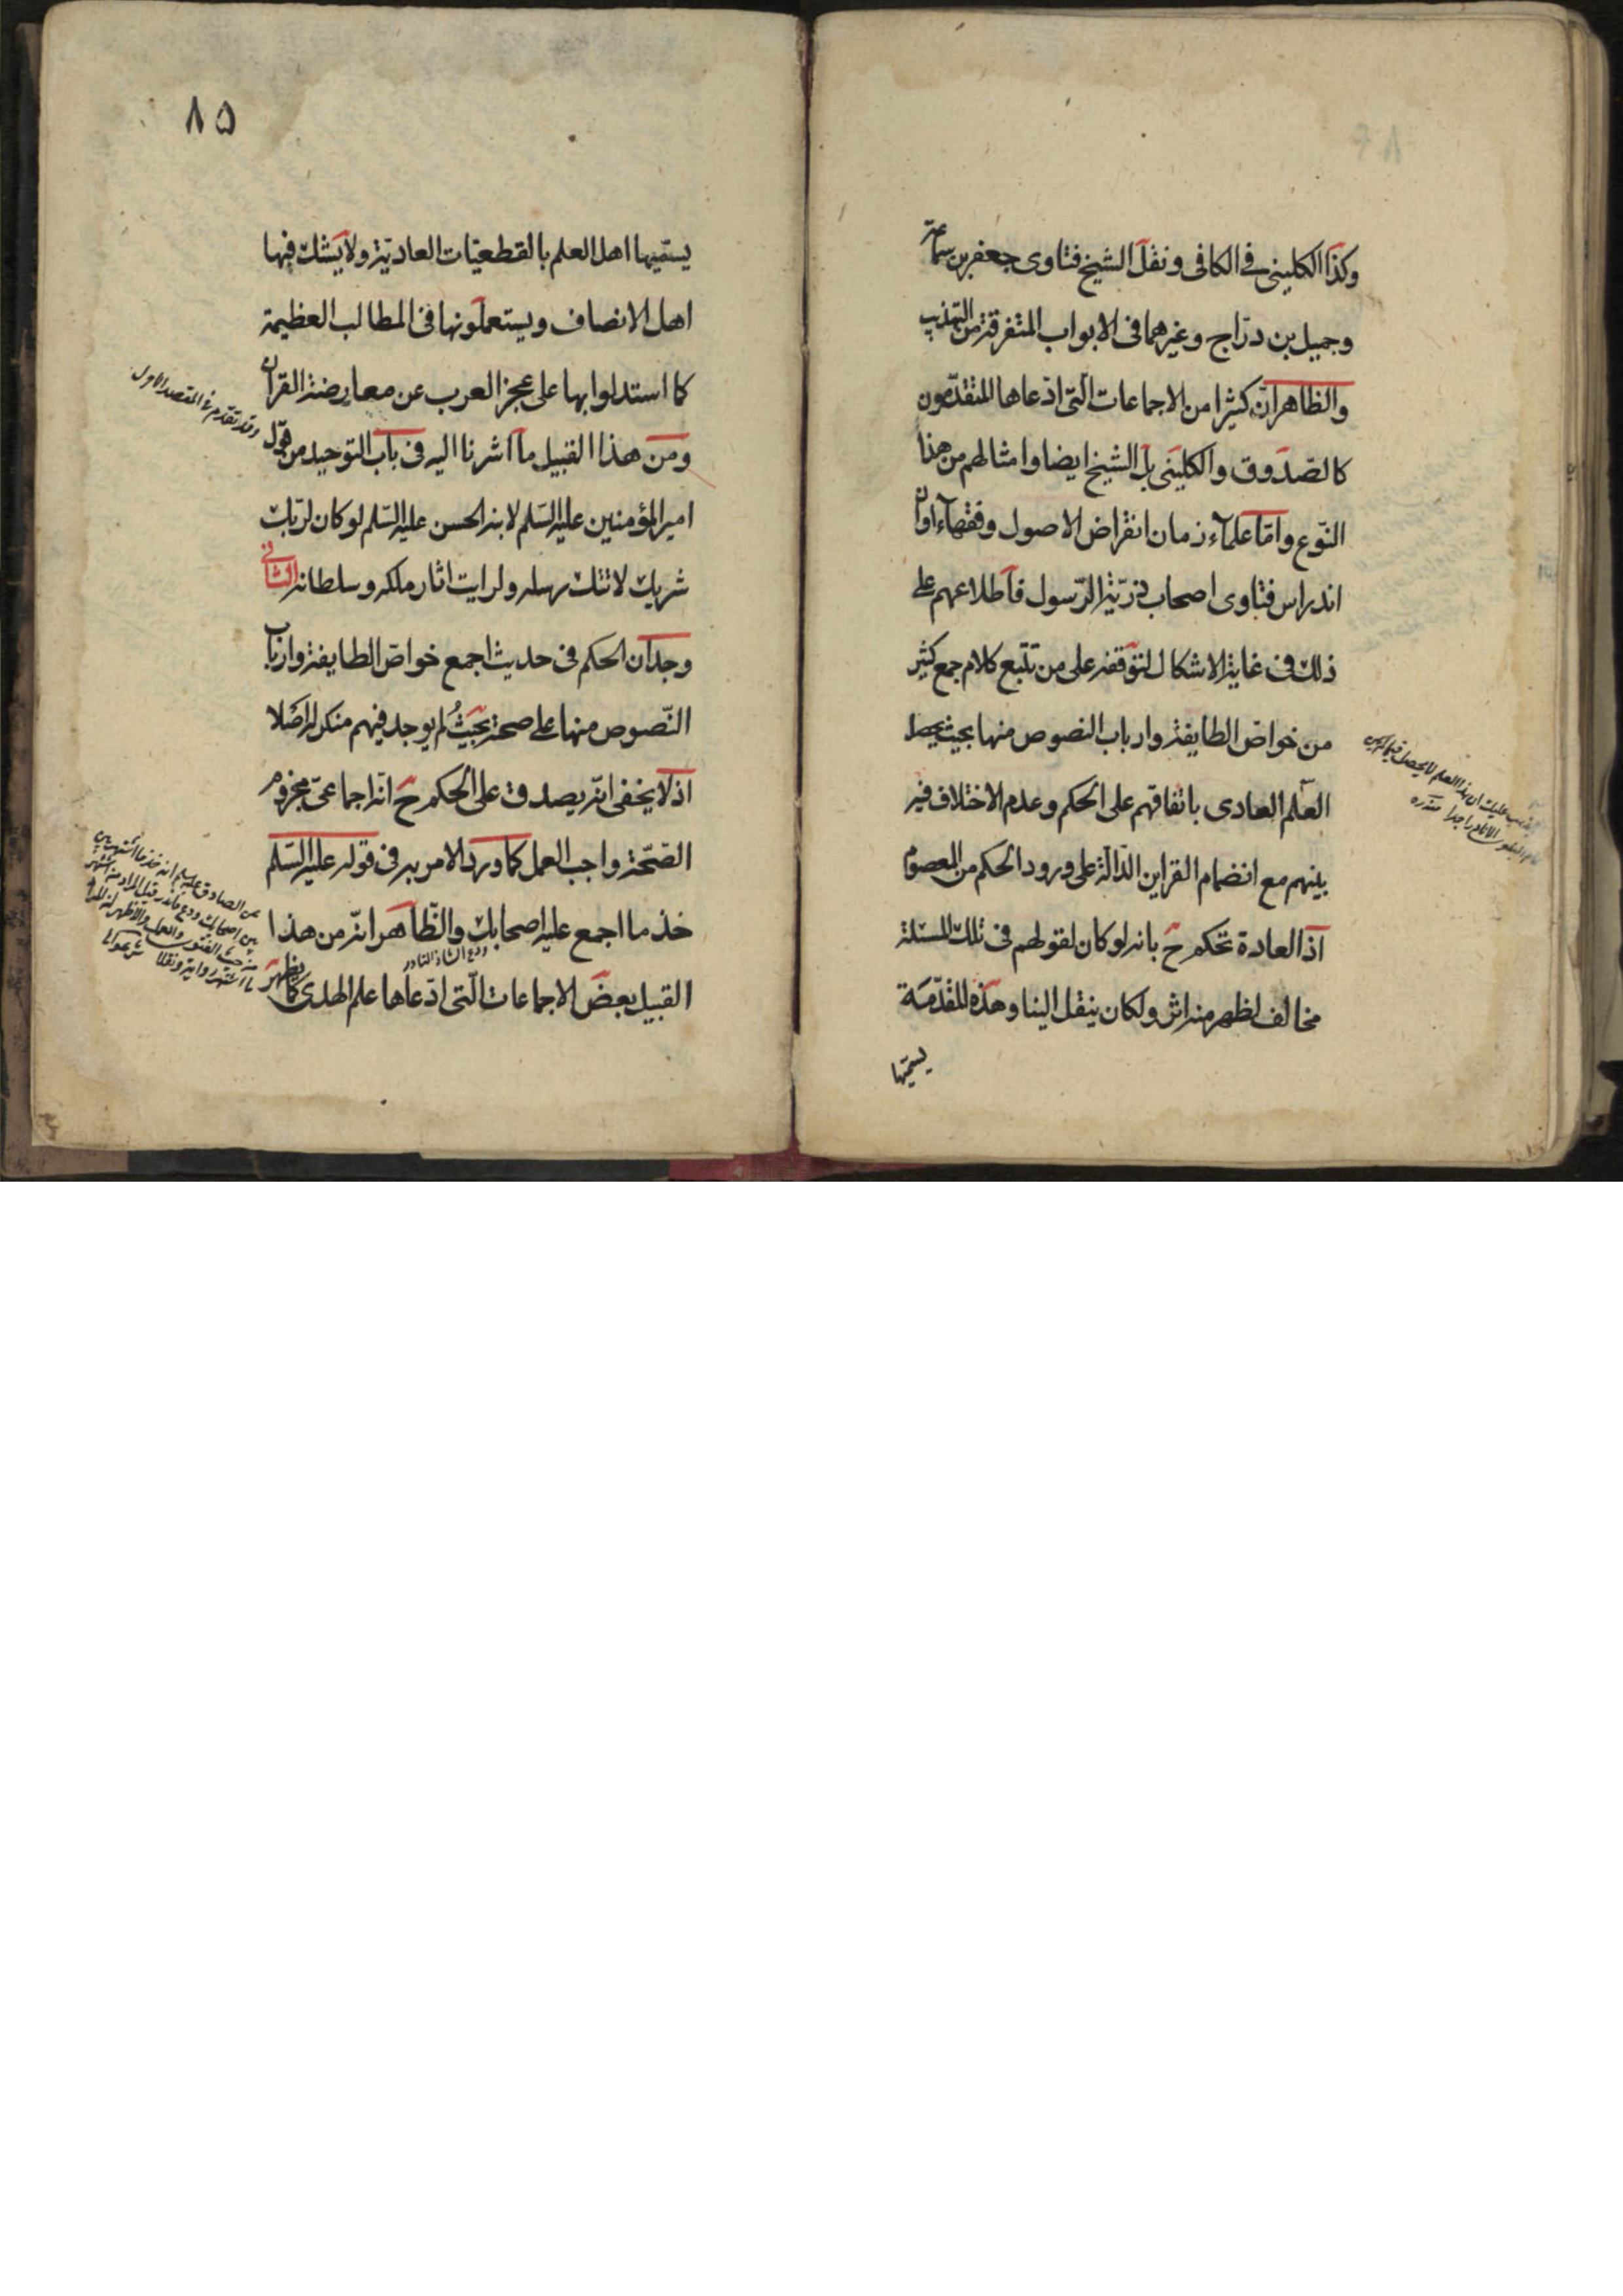 وكذا الكلينى فى الكافى ونقل الشيخ فتاوى جعفر بن سماعة
وجميل بن دراج وغيرهما فى الابواب المتفرقة من التهذيب
والظاهر انّ كثيرا من الاجماعات الّتى ادّعاها المتقدّمون
كالصّدوق والكلينى بل الشيخ ايضا وامثالهم من هذا
النّوع وامّا علماء زمان انقراض الاصول وفقهاء اوان
اندراس فتاوى اصحاب ذرّيّة الرّسول فاطلاعهم على
ذلك فى غاية الاشكال لتوقفه على من تتبع كلام جمع كثير
من خواصّ الطايفة وارباب النصوص منها بحيث يحصل
العلم العادى باتفاقهم على الحكم وعدم الاختلاف فيه
بينهم مع انضمام القراين الدّالّة على ورود الحكم من المعصوم
اذ العادة تحكم ح بانه لو كان لقولهم فى تلك المسئلة
مخالف لظهر منه اثر ولكان ينقل الينا وهذه المقدّمة
يسمّيها
عليك ان هذا العلم لا يحصل
٨٥
يسمّيها اهل العلم بالقطعيّات العاديّة ولا يشك فيها
اهل الانصاف ويستعملونها فى المطالب العظيمة
كما استدلوا بها على عجز العرب عن معارضة القران
وقد تقدم فى المقصد الاول
ومن هذا القبيل ما اشرنا اليه فى باب التوحيد من قول
امير المؤمنين عليه السّلم لابنه الحسن عليه السّلم لو كان لربّك
شريك لاتتك رسله ولرايت اثار ملكه وسلطانه الثانى
وجدان الحكم فى حديث اجمع خواصّ الطايفة وارباب
النّصوص منها على صحته بحيثُ لم يوجد فيهم منكر له اصلا
اذ لا يخفى انّه يصدق على الحكم ح انّه اجماعىّ مجزوم
الصّحّة واجب العمل كما ورد الامر به فى قوله عليه السّلم
خذ ما اجمع عليه اصحابك والظّاهر انّه من هذا
ودع الشاذ النادر
القبيل بعض الاجماعات الّتى ادّعاها علم الهدى كما يظهر
عن الصادق عليه السلم انه خذ ما اشتهر بين
بين اصحابك ودع ما ندر قيل المراد منه اشتهر
من حيث الفتوى والعمل والاظهر ان المراد
ما اشتهر رواية ونقلا